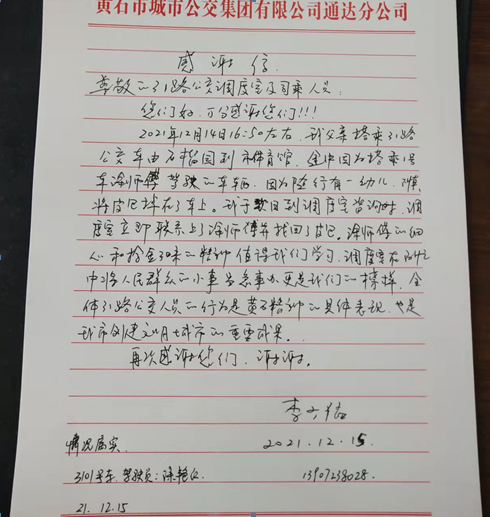 黄石市城市公交集团有限公司通达分公司
感谢信
尊敬的31路公交调度室及司乘人员:
您们好,万分感谢您们!!!
2021年12月14日16:50左右,我父亲搭乘31路
公交车由石榴园到市体育馆,途中因为搭乘1号
车涂师傅驾驶的车辆,因为随行有一幼儿,
将皮包掉在了车上。我于数日到调度室咨询时,调
度室立即联系上了涂师傅并找回了皮包。涂师傅的细
心和拾金不昧的精神值得我们学习,调度室在
中将人民群众的小事当急事办更是我们的榜样,全
体31路公交人员的行为是黄石精神的具体表现,也是
我市创建文明城市的重要成果。
再次感谢您们,谢谢。
李
2021.12.15
情况属实
3101号车,驾驶员:涂艳
13907238028.
21.12.15